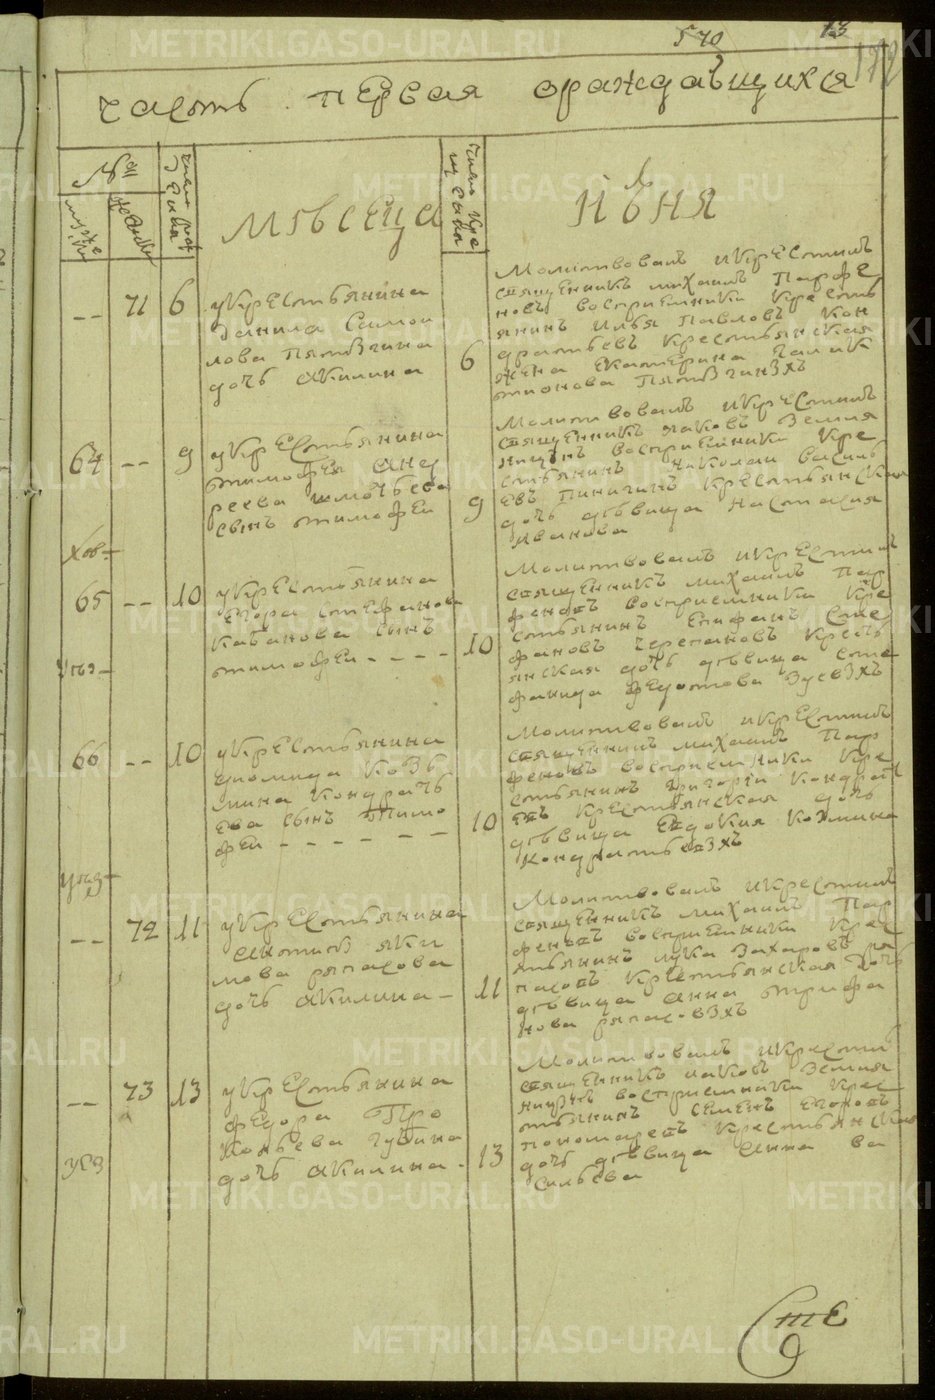 METRIKI.GASO-URAL.RU
570
13
часть первая ораждаъщихся
№
мужс
женск
число рож
дения
мѣсеца
число кре
щения
июня
-- 71 6
укрестьянина
данила самои
лова пятвгина
дочь акилина
6
молитвовалъ икрестилъ
священникъ михаилъ парфе
новъ восприемники кресть
янинъ илья павловъ кон
дратьевъ крестьянская
жена екатерина галак
тионова
64 -- 9
укрестьянина
тимофея анд
реева
сынъ тимофеи
9
молитвовалъ икрестилъ
священникъ иаковъ земля
ницынъ восприемники кре
стьянинъ николаи василь
евъ пиничинъ крестьянская
дочь дѣвица настасия
иванова
65 -- 10
укрестьянина
егора стефанова
кабанова сынъ
тимофеи - - - -
10
молитвовалъ икрестилъ
священникъ михаилъ пар
феновъ восприемники кре
стьянинъ епифанъ сте
фановъ черепановъ кресть
янская дочь дѣвица сте
фанида федотова зуевзхъ
66 -- 10
укрестьянина
диомида козь
мина кондрать
ева сынъ тимо
феи - - - - - -
10
молитвовалъ икрестилъ
священникъ михаилъ пар
феновъ восприемники кре
стьянинъ григории кондрать
евъ крестьянская дочь
дѣвица евдокия козмина
кондратьевзхъ
-- 72 11
укрестьянина
антипв яки
мова ряпасова
дочь акилина -
11
молитвовалъ икрестилъ
священникъ михаилъ пар
феновъ восприемники крес
тьянинъ лука захаровъ ря
пасовъ крестьянская дочь
дѣвица анна трифа
нова ряпасовзхъ
-- 73 13
укрестьянина
федора про
копьева губина
дочь акилина -
13
молитвовалъ икрестилъ
священникъ иаковъ земля
ницынъ восприемники крес
тьянинъ семенъ егоровъ
пономаревъ крестьянская
дочь дѣвица анна ва
сильева